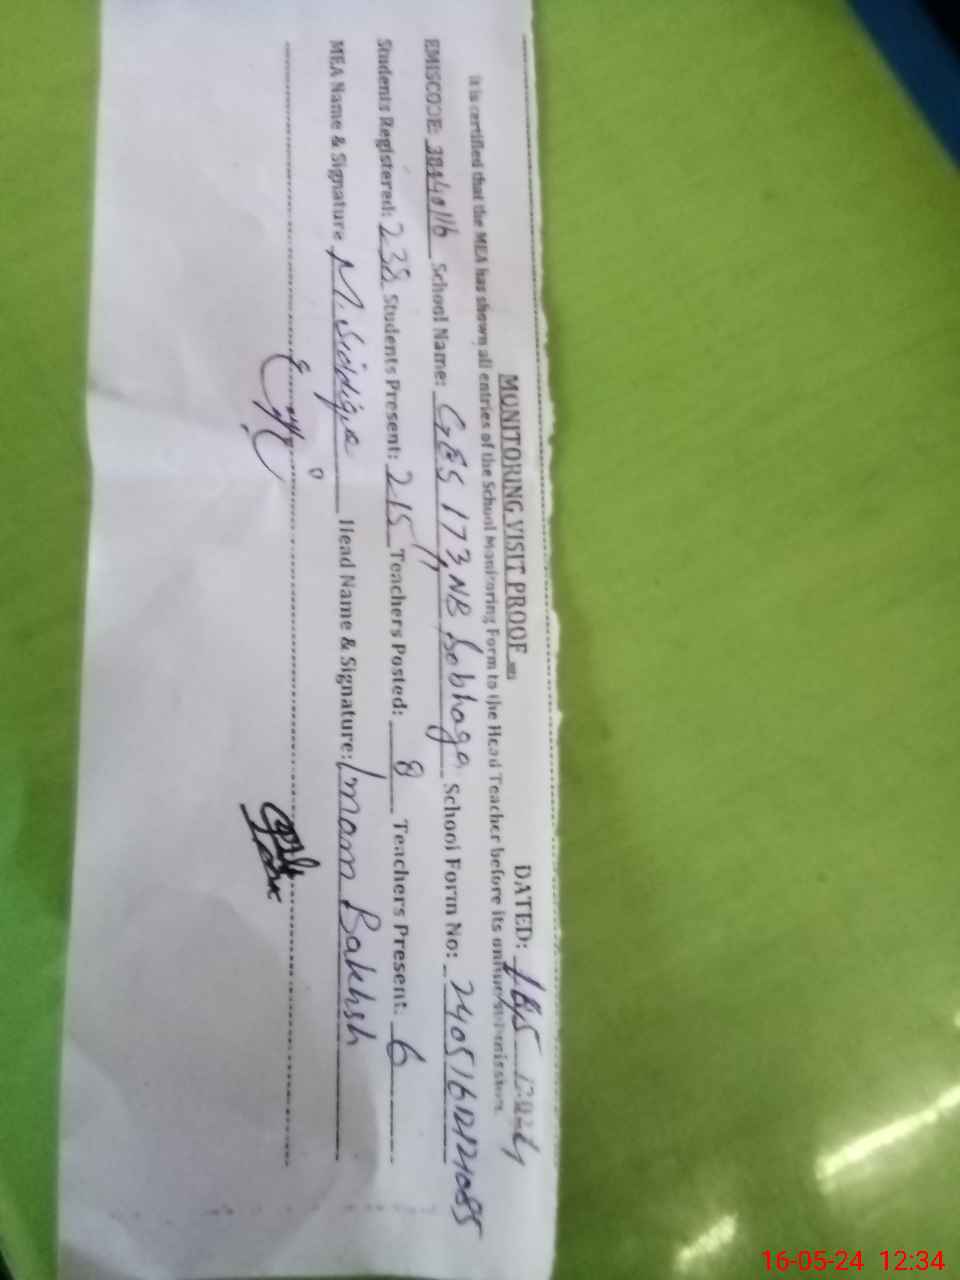 MONITORING VISIT PROOF
DATED: 16/5/2024
It is certified that the MEA has shown all entries of the School Monitoring Form to the Head Teacher before its online submission.
EMISCODE: 38440116 School Name: GES 173 NB Sobhaga School Form No:
Students Registered: 238 Students Present: 215 Teachers Posted: 8 Teachers Present: 6
MEA Name & Signature M. Siddique Head Name & Signature: Imam Bakhsh
16-05-24 12:34